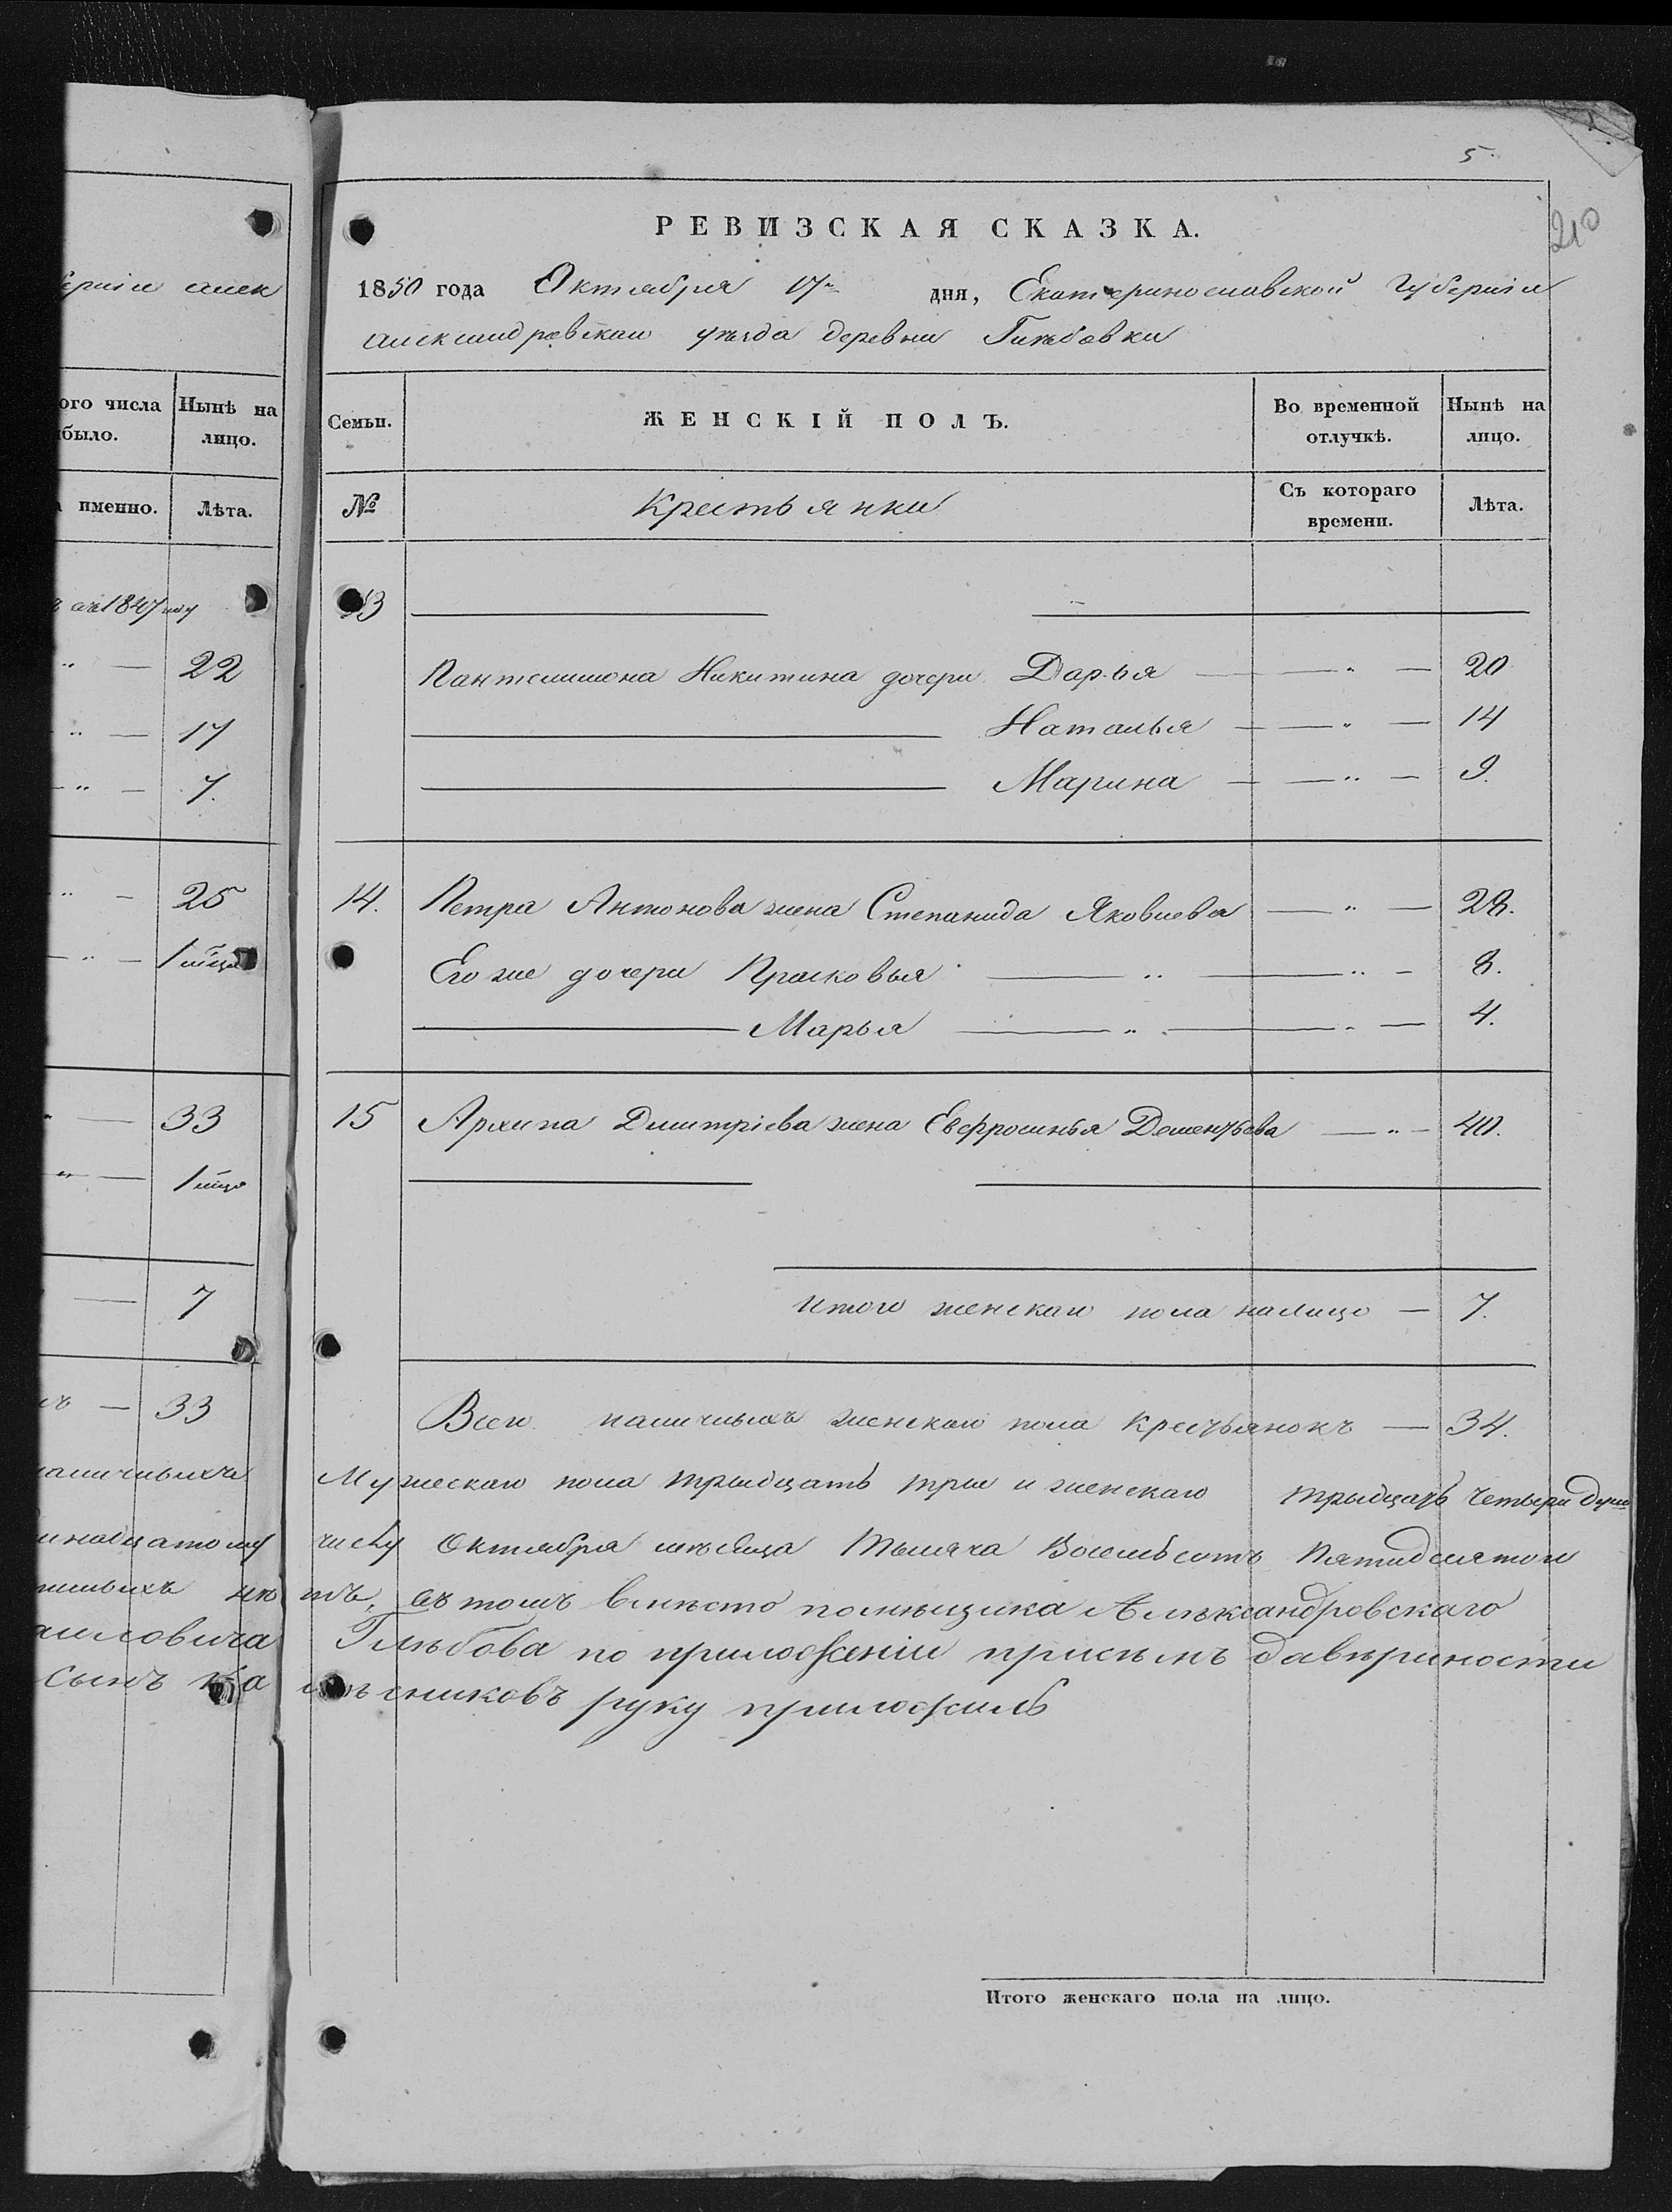 5.
210
РЕВИЗСКАЯ СКАЗКА.
1850 года Октября 17го дня, Екатеринославской Губерніи
Александровскаго уѣзда деревни Глѣбовки
Семьи. ЖЕНСКІЙ ПОЛЪ. Во временной отлучкѣ. Нынѣ на лицо.
№ Крестьянки Съ котораго времени. Лѣта.
13
Пантелимона Никитина дочери Дарья — " — 20
Наталья — " — 14
Марина — " — 9.
14. Петра Антонова жена Степанида Яковлева — " — 28.
Его же дочери Прасковья — " — " — 8.
Марья — " — " — 4.
15 Архипа Дмитріева жена Евфросинья Деменьтьева — " — 40.
итого женскаго пола налицо — 7.
Всего наличныхъ женскаго пола крестьянокъ — 34.
Мужескаго пола тридцать три и женскаго тридцать четыри душ
числу Октября мѣсяца Тысяча Восемьсотъ Пятидесятого
тъ, въ томъ вмѣсто помѣщика Алѣксандровскаго
Глѣбова по приложеніи присѣмъ давѣриности
сниковъ руку приложилъ
ерніи алек
ого числа было. Нынѣ на лицо.
именно. Лѣта.
1847 году
" — 22
" — 17
" — 7.
" — 25
" —
" — 33
" —
— 7
— 33
наличныхъ
надцатому
аиловича
сынъ
Итого женскаго пола на лицо.